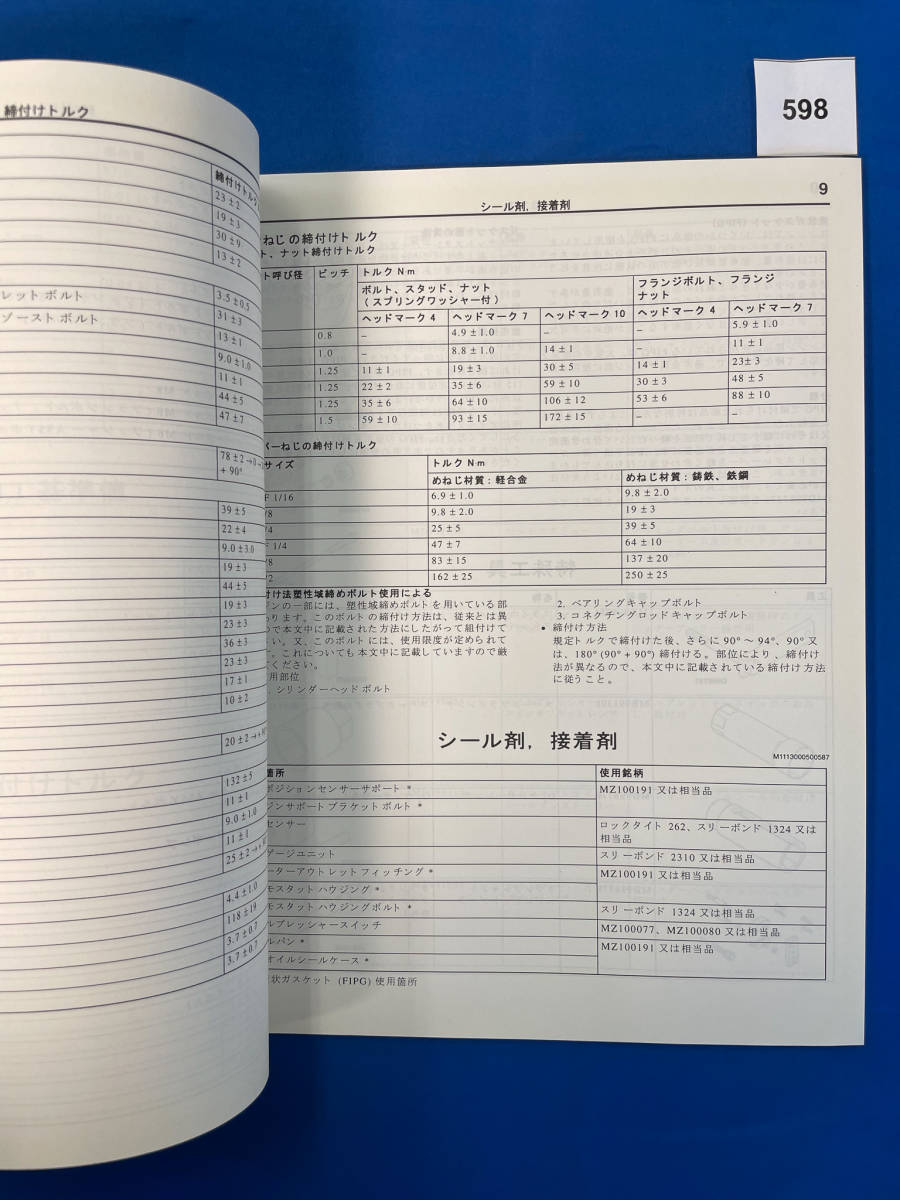 598
締付けトルク
締付けトルク
23 ± 2
19 ± 3
30 ± 9
13 ± 2
レットボルト 3.5 ± 0.5
ゾーストボルト 31 ± 3
13 ± 1
9.0 ± 1.0
11 ± 1
44 ± 5
47 ± 7
78 ± 2 → 0 →
+ 90°
39 ± 5
22 ± 4
9.0 ± 3.0
19 ± 3
44 ± 5
19 ± 3
23 ± 3
36 ± 3
23 ± 3
17 ± 1
10 ± 2
20 ± 2 → +
132 ± 5
11 ± 1
9.0 ± 1.0
11 ± 1
25 ± 2 → +
4.4 ± 1.0
118 ± 19
3.7 ± 0.7
3.7 ± 0.7
9
シール剤, 接着剤
ねじの締付けトルク
ト、ナット締付けトルク
ト呼び径 ピッチ トルク N m
ボルト、スタッド、ナット
(スプリングワッシャー付) フランジボルト、フランジ
ナット
ヘッドマーク 4 ヘッドマーク 7 ヘッドマーク 10 ヘッドマーク 4 ヘッドマーク 7
0.8 – 4.9 ± 1.0 – – 5.9 ± 1.0
1.0 – 8.8 ± 1.0 14 ± 1 – 11 ± 1
1.25 11 ± 1 19 ± 3 30 ± 5 14 ± 1 23± 3
1.25 22 ± 2 35 ± 6 59 ± 10 30 ± 3 48 ± 5
1.25 35 ± 6 64 ± 10 106 ± 12 53 ± 6 88 ± 10
1.5 59 ± 10 93 ± 15 172 ± 15 – –
パーねじの締付けトルク
サイズ トルク N m
めねじ材質：軽合金 めねじ材質：鋳鉄、鉄鋼
F 1/16 6.9 ± 1.0 9.8 ± 2.0
/8 9.8 ± 2.0 19 ± 3
/4 25 ± 5 39 ± 5
F 1/4 47 ± 7 64 ± 10
/8 83 ± 15 137 ± 20
/2 162 ± 25 250 ± 25
け法塑性域締めボルト使用による
ンの一部には、塑性域締めボルトを用いている部
ります。このボルトの締付け方法は、従来とは異
で本文中に記載された方法にしたがって組付けて
い。又、このボルトには、使用限度が定められて
。これについても本文中に記載していますので厳
ください。
用部位
. シリンダーヘッドボルト
2. ベアリングキャップボルト
3. コネクチングロッドキャップボルト
• 締付け方法
規定トルクで締付けた後、さらに 90° ～ 94°、90° 又
は、180° (90° + 90°) 締付ける。部位により、締付け
法が異なるので、本文中に記載されている締付け方法
に従うこと。
シール剤, 接着剤
M1113000500587
箇所 使用銘柄
ポジションセンサーサポート * MZ100191 又は相当品
ジンサポートブラケットボルト *
センサー ロックタイト 262、スリーボンド 1324 又は
相当品
ゲージユニット スリーボンド 2310 又は相当品
ーターアウトレットフィッチング * MZ100191 又は相当品
モスタットハウジング *
モスタットハウジングボルト * スリーボンド 1324 又は相当品
ルプレッシャースイッチ MZ100077、MZ100080 又は相当品
ルパン * MZ100191 又は相当品
オイルシールケース *
状ガスケット (FIPG) 使用箇所